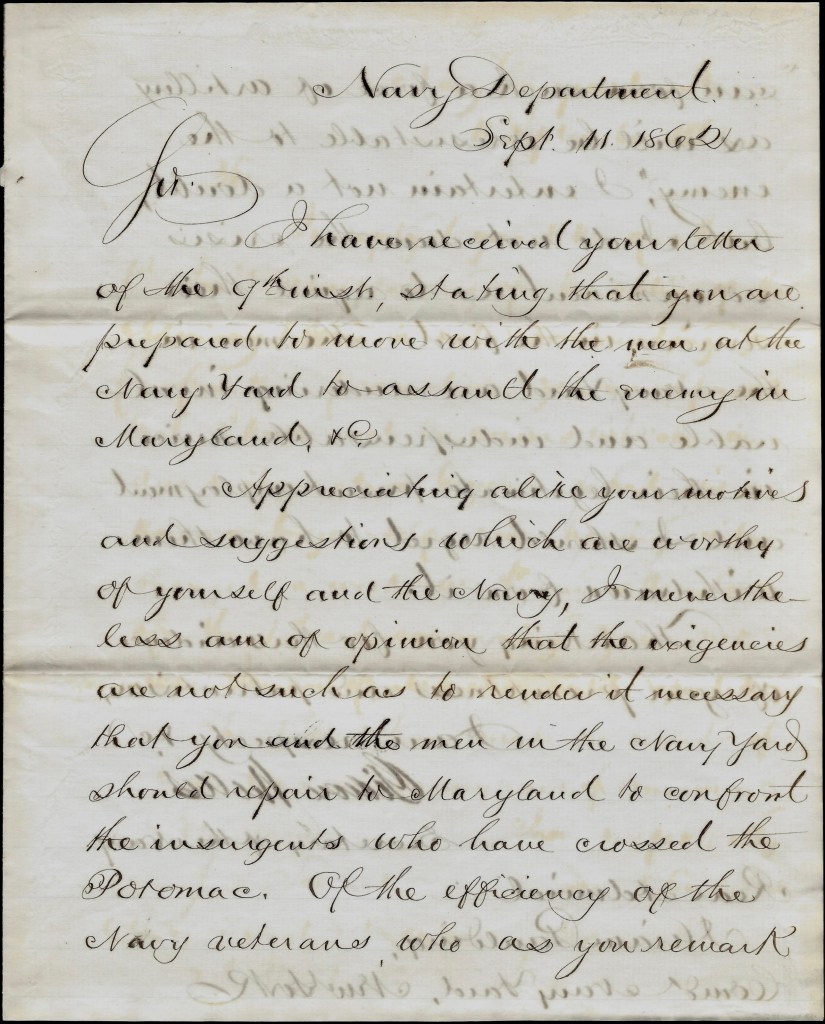 Navy Department.
Sept. 11. 1862
Sir.
I have received your letter
of the 9th inst, stating that you are
prepared to move with the men at the
Navy Yard to assault the enemy in
Maryland, &c.
Appreciating alike your motives
and suggestions which are worthy
of yourself and the Navy, I neverthe-
less am of opinion that the exigencies
are not such as to render it necessary
that you and the men in the Navy Yard
should repair to Maryland to confront
the insurgents who have crossed the
Potomac. Of the efficiency of the
Navy veterans, who as you remark